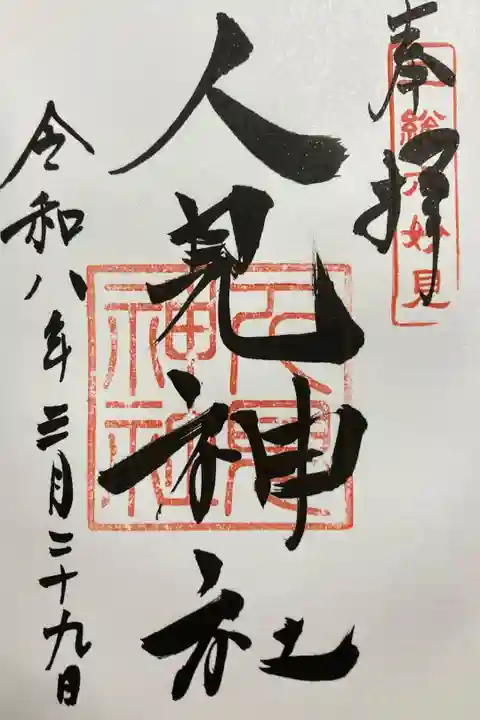 奉拝
総 妙見
人見神社
人見神社
令和八年三月二十九日